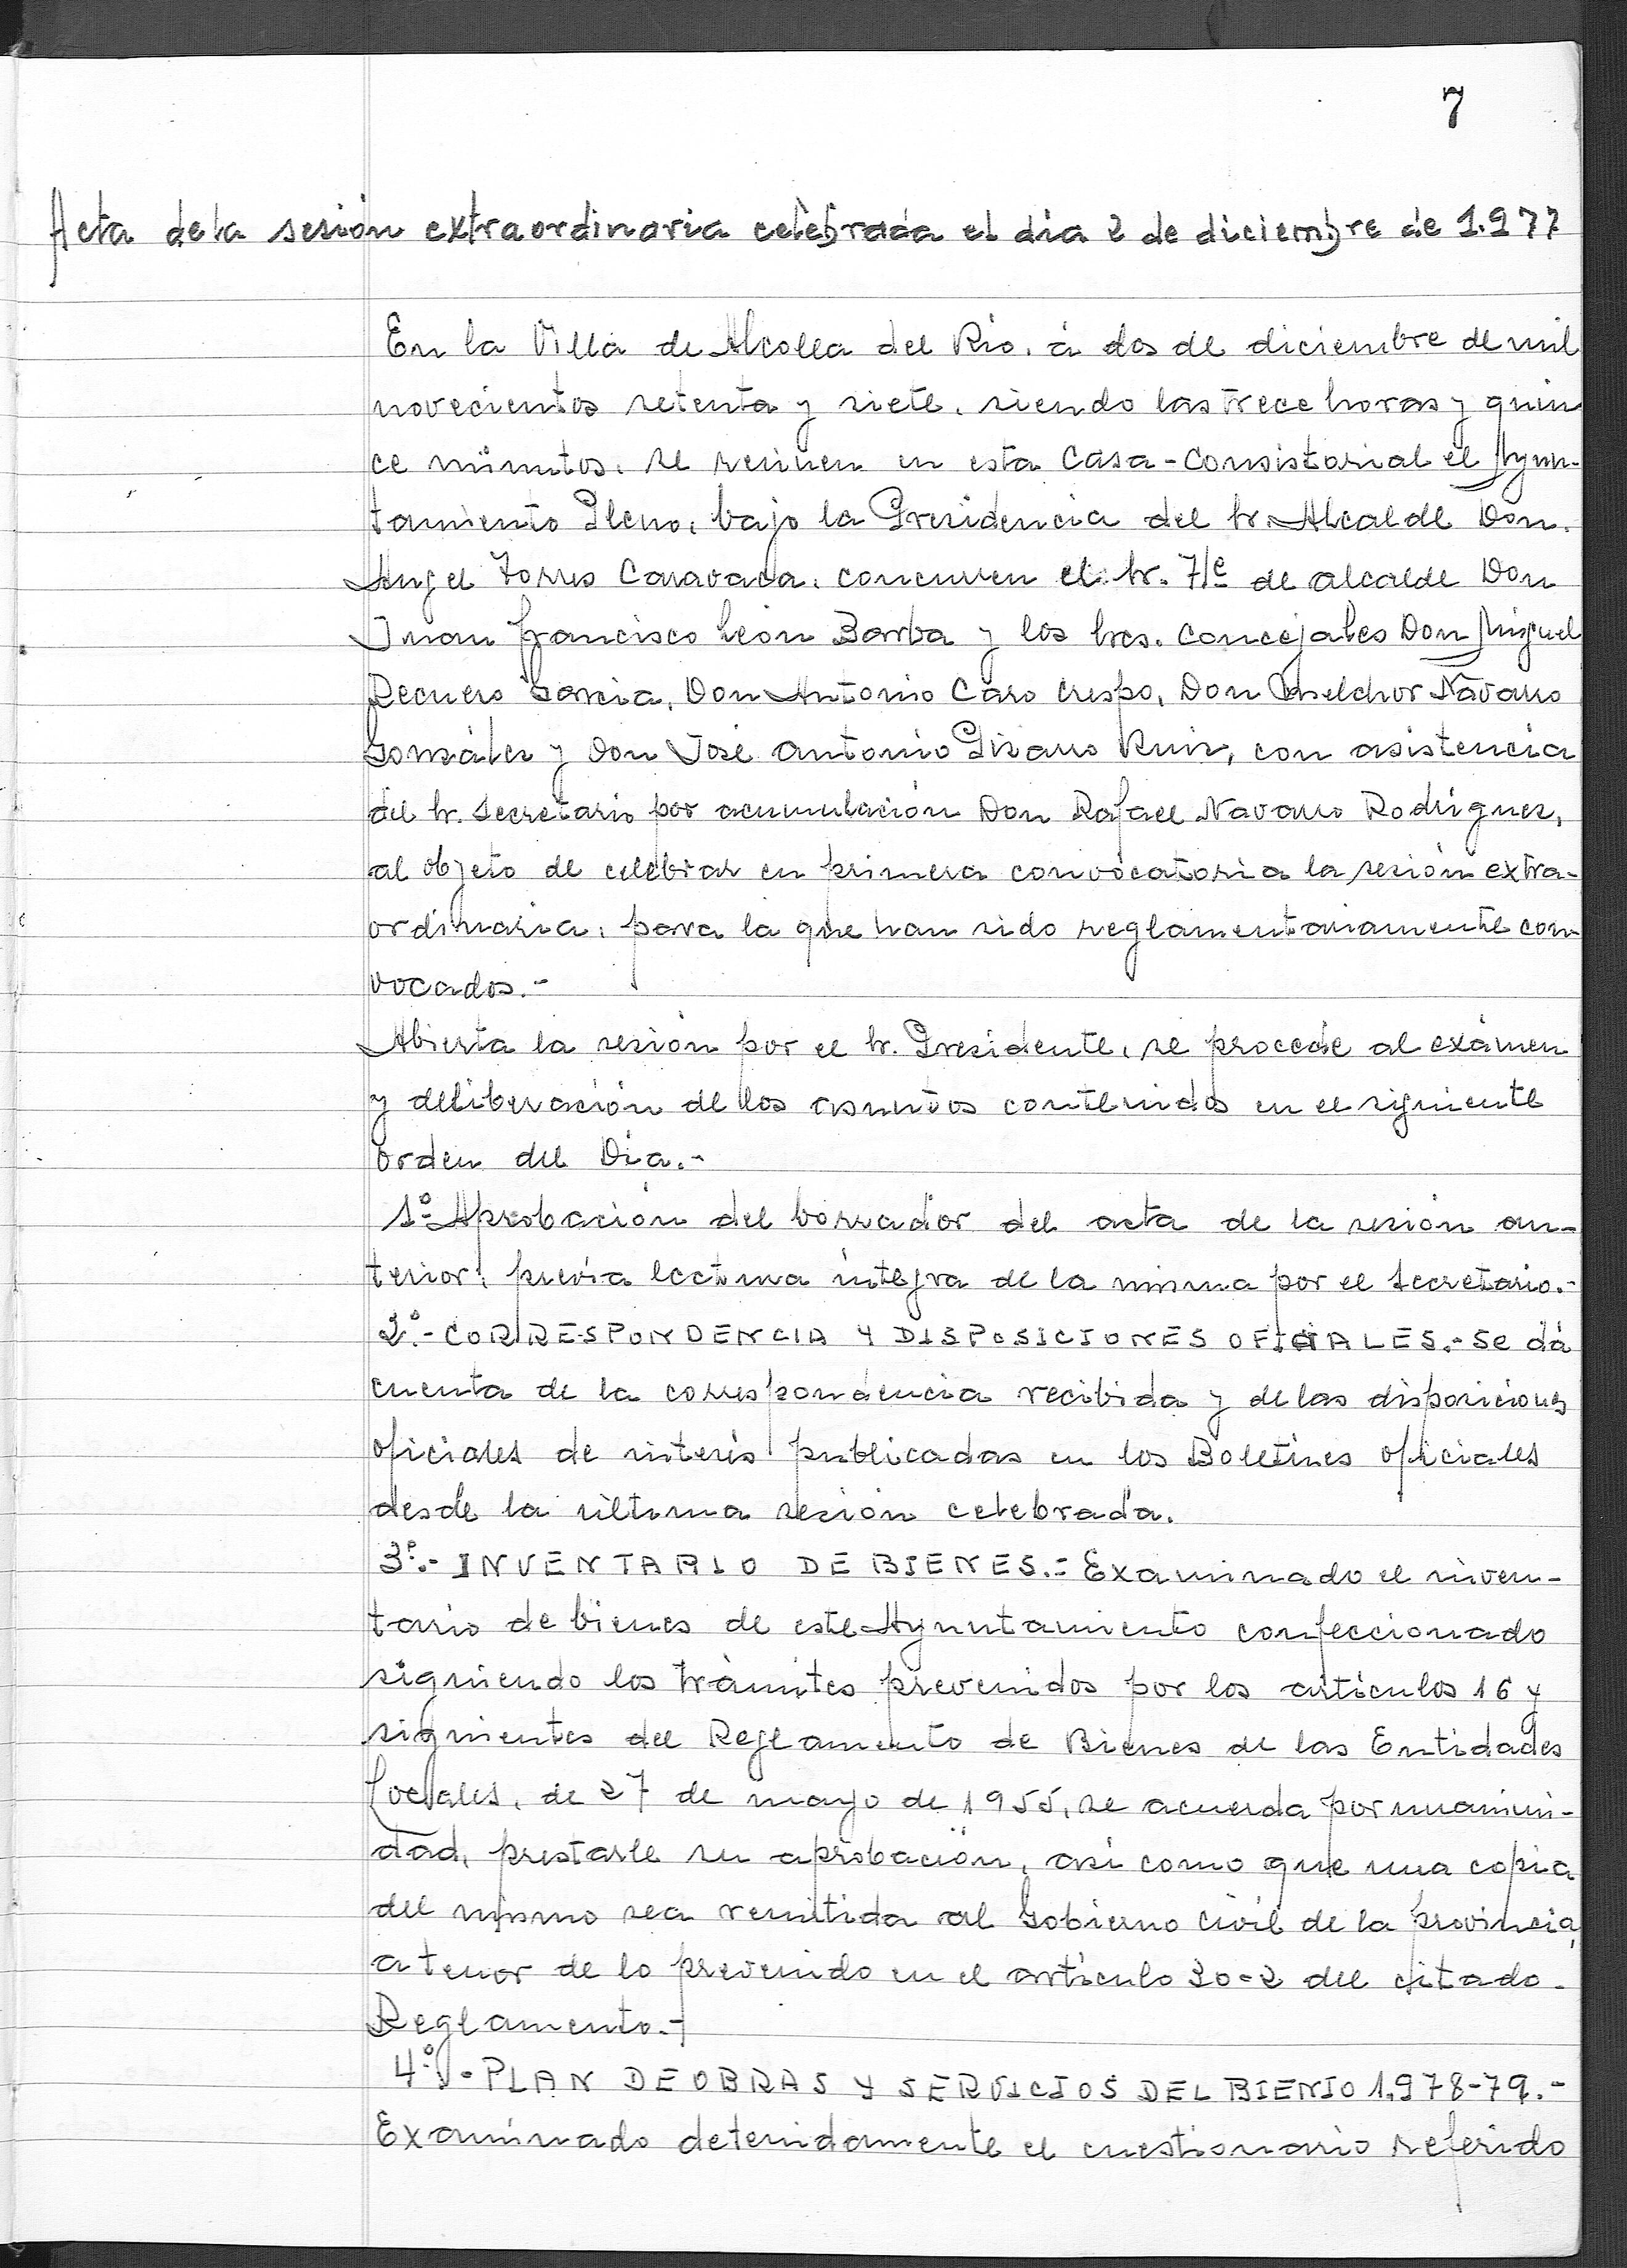 7
Acta de la sesión extraordinaria celebrada el dia 2 de diciembre de 1.977
En la Villa de Alcolea del Rio, a dos de diciembre de mil
novecientos setenta y siete, siendo las trece horas y quin
ce minutos, se reunen en esta Casa-Consistorial el Ayun-
tamiento Pleno, bajo la Presidencia del Sr. Alcalde Don
Angel Torres Caravaca, concurren el Sr. Tte de alcalde Don
Juan Francisco León Barba y los Sres. Concejales Don Miguel
Recuero Garcia, Don Antonio Caro Crespo, Don Melchor Navarro
González y Don José Antonio Pizarro Ruiz, con asistencia
del Sr. Secretario por acumulación Don Rafael Navarro Rodriguez,
al objeto de celebrar en primera convocatoria la sesión extra-
ordinaria, para la que han sido reglamentariamente con
vocados.-
Abierta la sesión por el Sr. Presidente, se procede al exámen
y deliberación de los asuntos contenidos en el siguiente
orden del Dia.-
1º Aprobación del borrador del acta de la sesión an-
terior, previa lectura integra de la misma por el Secretario.-
2º.- CORRESPONDENCIA Y DISPOSICIONES OFICIALES.- Se dá
cuenta de la correspondencia recibida y de las disposiciones
oficiales de interés publicadas en los Boletines oficiales
desde la última sesión celebrada.
3º.- INVENTARIO DE BIENES.- Examinado el inven-
tario de bienes de este Ayuntamiento confeccionado
siguiendo los trámites prevenidos por los artículos 16 y
siguientes del Reglamento de Bienes de las Entidades
Locales, de 27 de mayo de 1955, se acuerda por unanimi-
dad, prestarle su aprobación, asi como que una copia
del mismo sea remitida al Gobierno Civil de la provincia,
a tenor de lo prevenido en el artículo 30-2 del citado
Reglamento.-
4º.- PLAN DE OBRAS Y SERVICIOS DEL BIENIO 1.978-79.-
Examinado detenidamente el cuestionario referido